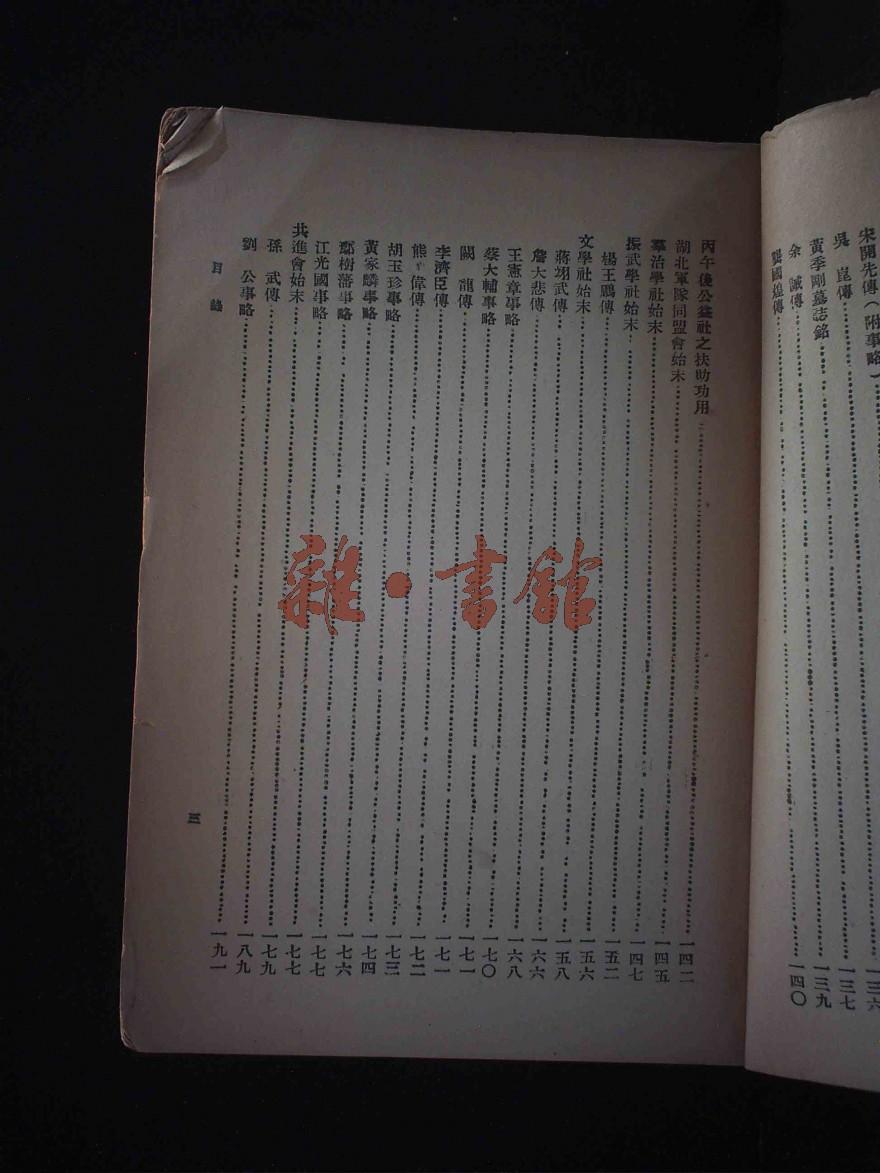 宋開先傳(附事略)……一三六
吳　崑傳……一三七
黃季剛墓誌銘……一三九
余　誠傳……一四〇
龔國煌傳……
丙午後公益社之扶助功用……一四二
湖北軍隊同盟會始末……一四五
羣治學社始末……一四七
振武學社始末……一五二
楊王鵬傳……一五六
文學社始末……一五八
蔣翊武傳……一六六
詹大悲傳……一六八
王憲章事略……一七〇
蔡大輔事略……一七一
闕　龍傳……一七一
李濟臣傳……一七二
熊　偉傳……一七三
胡玉珍事略……一七四
黃家麟事略……一七六
樹藩事略……一七七
江光國事略……一七七
共進會始末……一七九
孫　武傳……一八九
劉　公事略……一九一
目錄
三
雜·書館